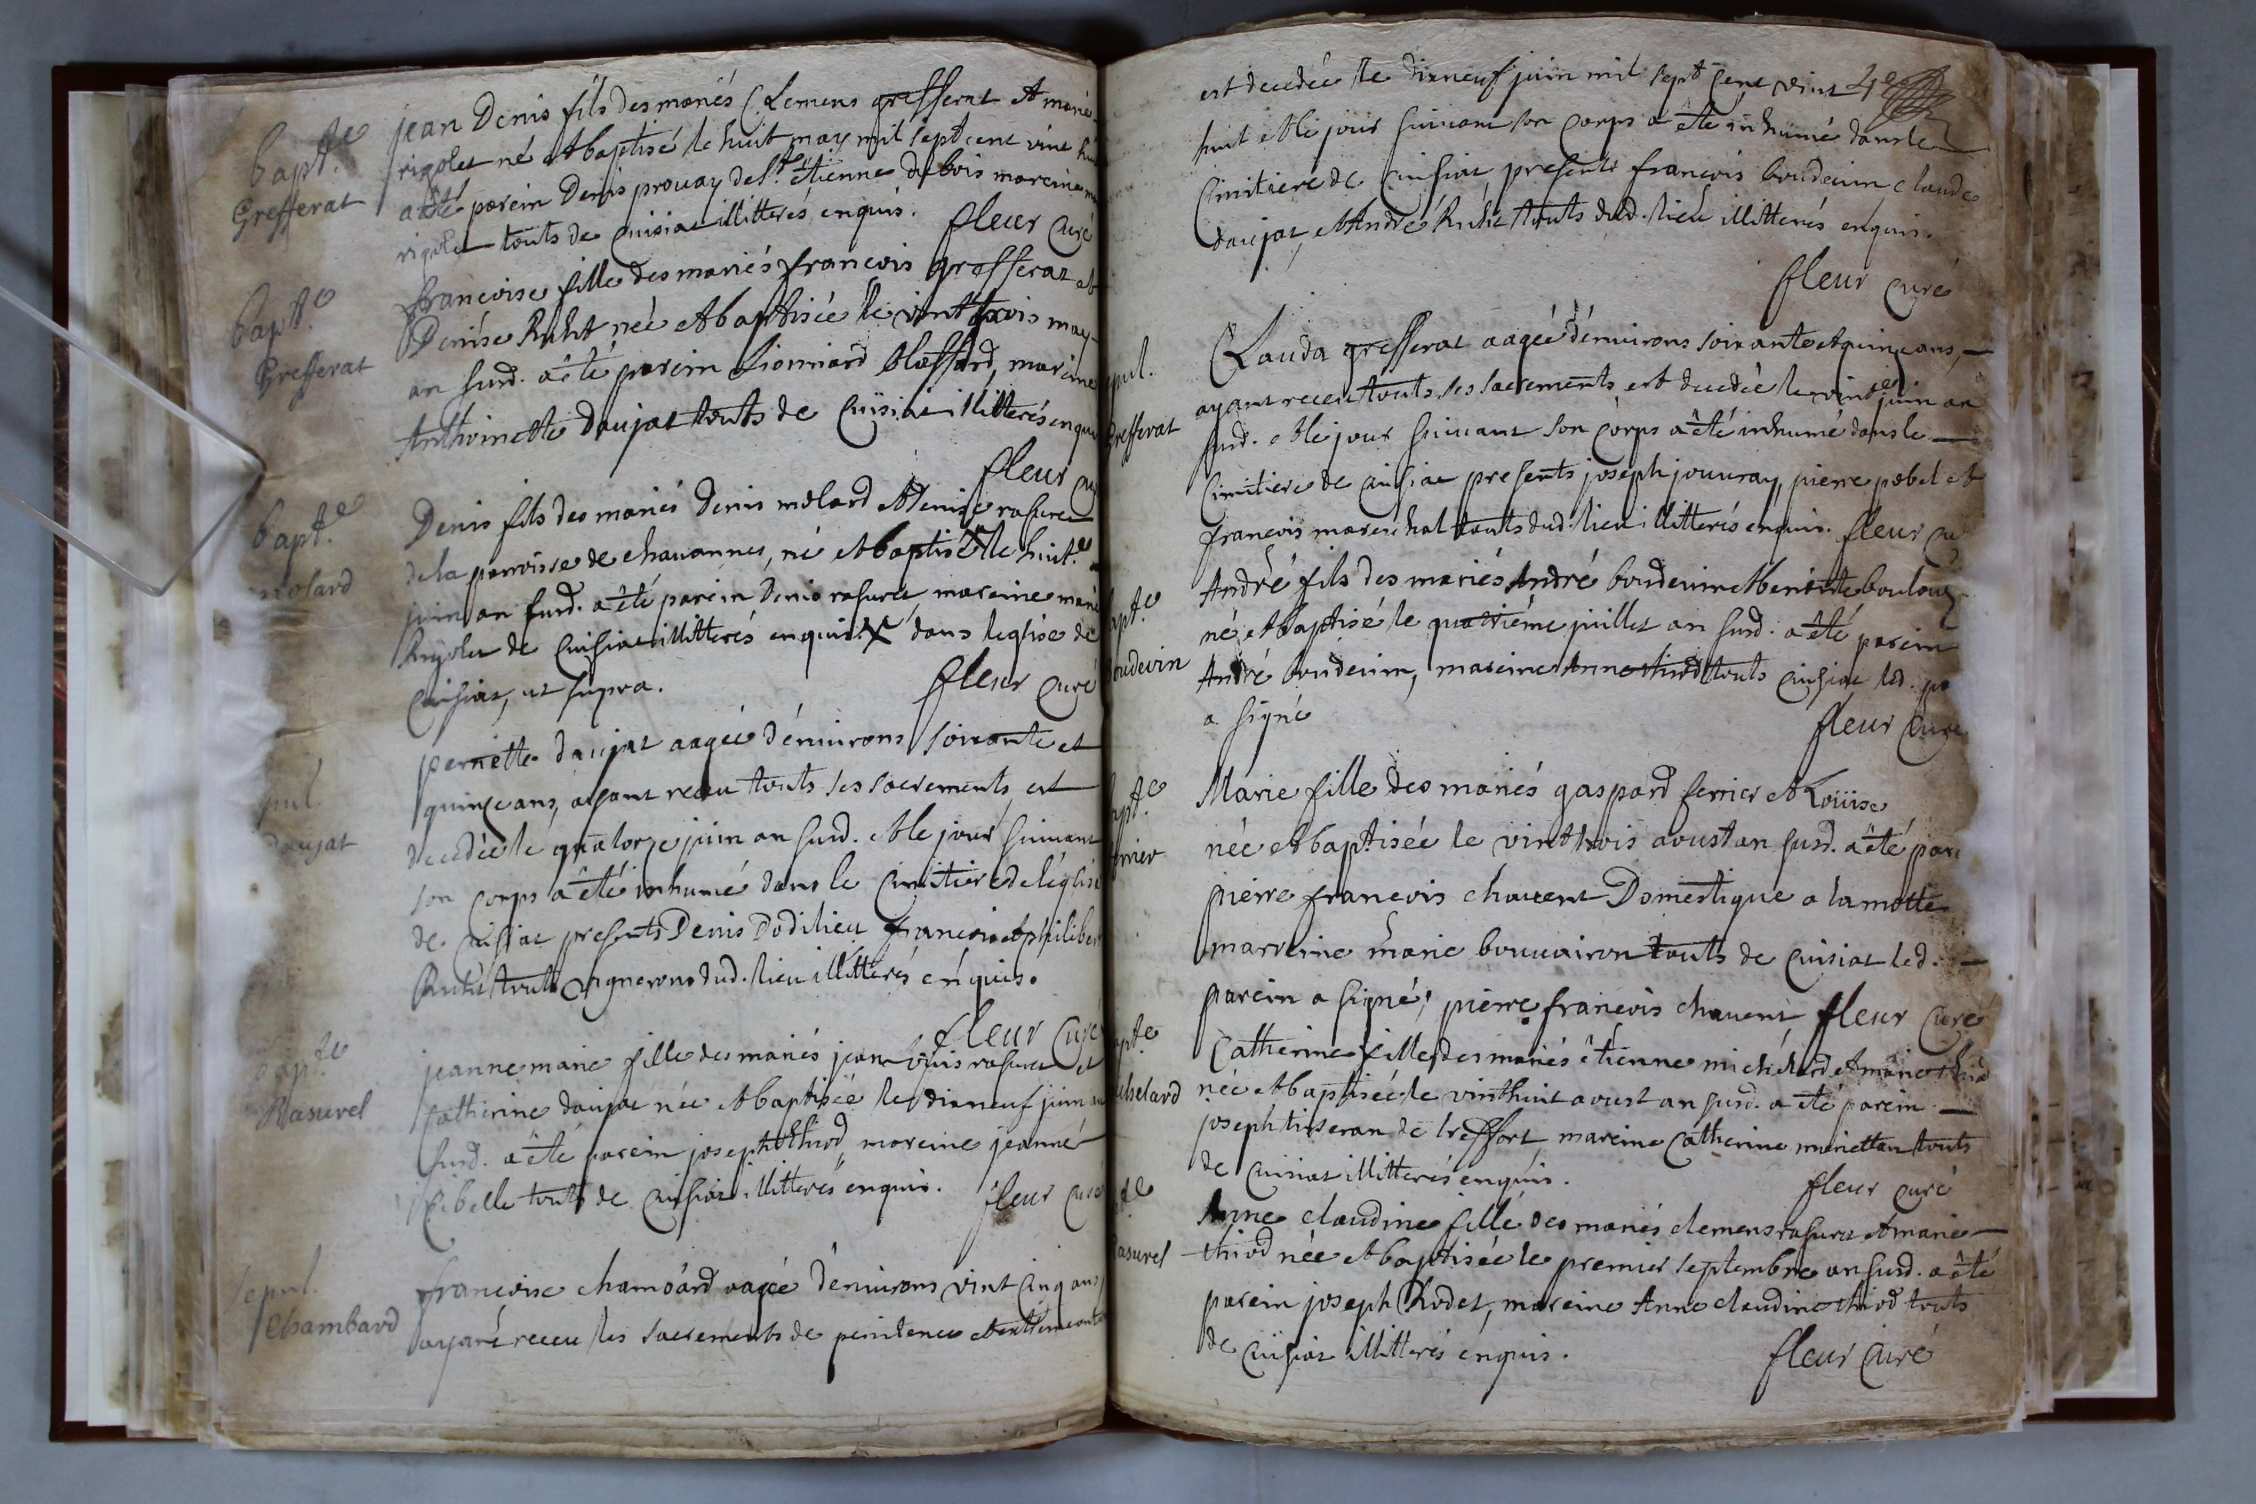 bapt.e
Grefferat
jean Denis fils des mariés Clemens grefferat et marie
rigolet né et baptisé le huit may mil sept cent vint huit
a été parein Denis prouay de st. étienne du bois mareine
rigolet touts de cuisiat illitterés enquis. fleur curé
bapt.e
Grefferat
francoise fille des mariés francois grefferat et
Denise Ruht née et baptisée le vint trois may
an susd. a été parein Lionnard blassard, mareine
Anthoinette daujat touts de cuisiat illitterés enquis
fleur cu
bapt.e
molard
Denis fils des mariés Denis molard et Denise rasurel
de la parroisse de chavannes, né et baptisé X le huit.e
juin an susd. a été parein Denis rasurel mareine marie
Rigolet de cuisiat illitterés enquis. X dans leglise de
cuisiat, ut supra. fleur curé
pul.
daujat
pernette daujat aagée d'environs soixante et
quinze ans, ayant receu touts ses sacrements, est
decedée le quatorze juin an susd. et le jour suivant
son corps a été inhumé dans le cimitiere de léglise
de cuisiat presents Denis Dodilieu francois et philiber
Ruht touts vignerons dud. lieu illitterés enquis.
fleur curé
bapt.e
Rasurel
jeanne marie fille des mariés jean louis rasurel et
Catherine daujat née et baptisée le dixneuf juin an
susd. a été parein joseph thiod, mareine jeanne
Cibelle touts de cuisiat illitterés enquis. fleur curé
Sepul.
Chambard
francoise chambard aagée d'environs vint cinq ans
ayant receu les sacrements de penitence et extremeonct
est decedée le dixneuf juin mil sept cent vint
huit et le jour suivant son corps a été inhumé dans le
cimitiere de cuisiat, presents francois boudevin claude
daujat, et André Ruht touts dud. lieu illitterés enquis.
fleur curé
pul.
Grefferat
Clauda grefferat aagée d'environs soixante et quinze ans,
ayant receu touts ses sacrements, est decedée le vint juin an
susd. et le jour suivant son corps a été inhumé dans le
cimitiere de cuisiat presents joseph jouvray, pierre pobel et
francois mareschal touts dud. lieu illitterés enquis. fleur cu
apt.e
oudevin
André fils des mariés André boudevin et benoite boulouz
né et baptisé le quatriéme juillet an susd. a été parein
André boudevin, mareine Anne thiod touts cuisiat led. pa
a signé fleur curé
apt.e
rrier
Marie fille des mariés gaspard ferrier et Loüise
née et baptisée le vint trois avoust an susd. a été pare
pierre francois chavent Domestique a lamotte
marreine marie bouvairon touts de cuisiat led.
parein a signé, pierre francois chavent fleur curé
apt.e
chelard
Catherine fille des mariés étienne michelard et marie thiod
née et baptisée le vint huit avoust an susd. a été parein
joseph tisseran de treffort, mareine Catherine muriettan touts
de cuisiat illitterés enquis. fleur curé
t.e
Rasurel
Anne claudine fille des mariés clemens rasurel et marie
thiod née et baptisée le premier septembre an susd. a été
parein joseph Rodet, mareine Anne claudine thiod touts
de cuisiat illitterés enquis. fleur curé